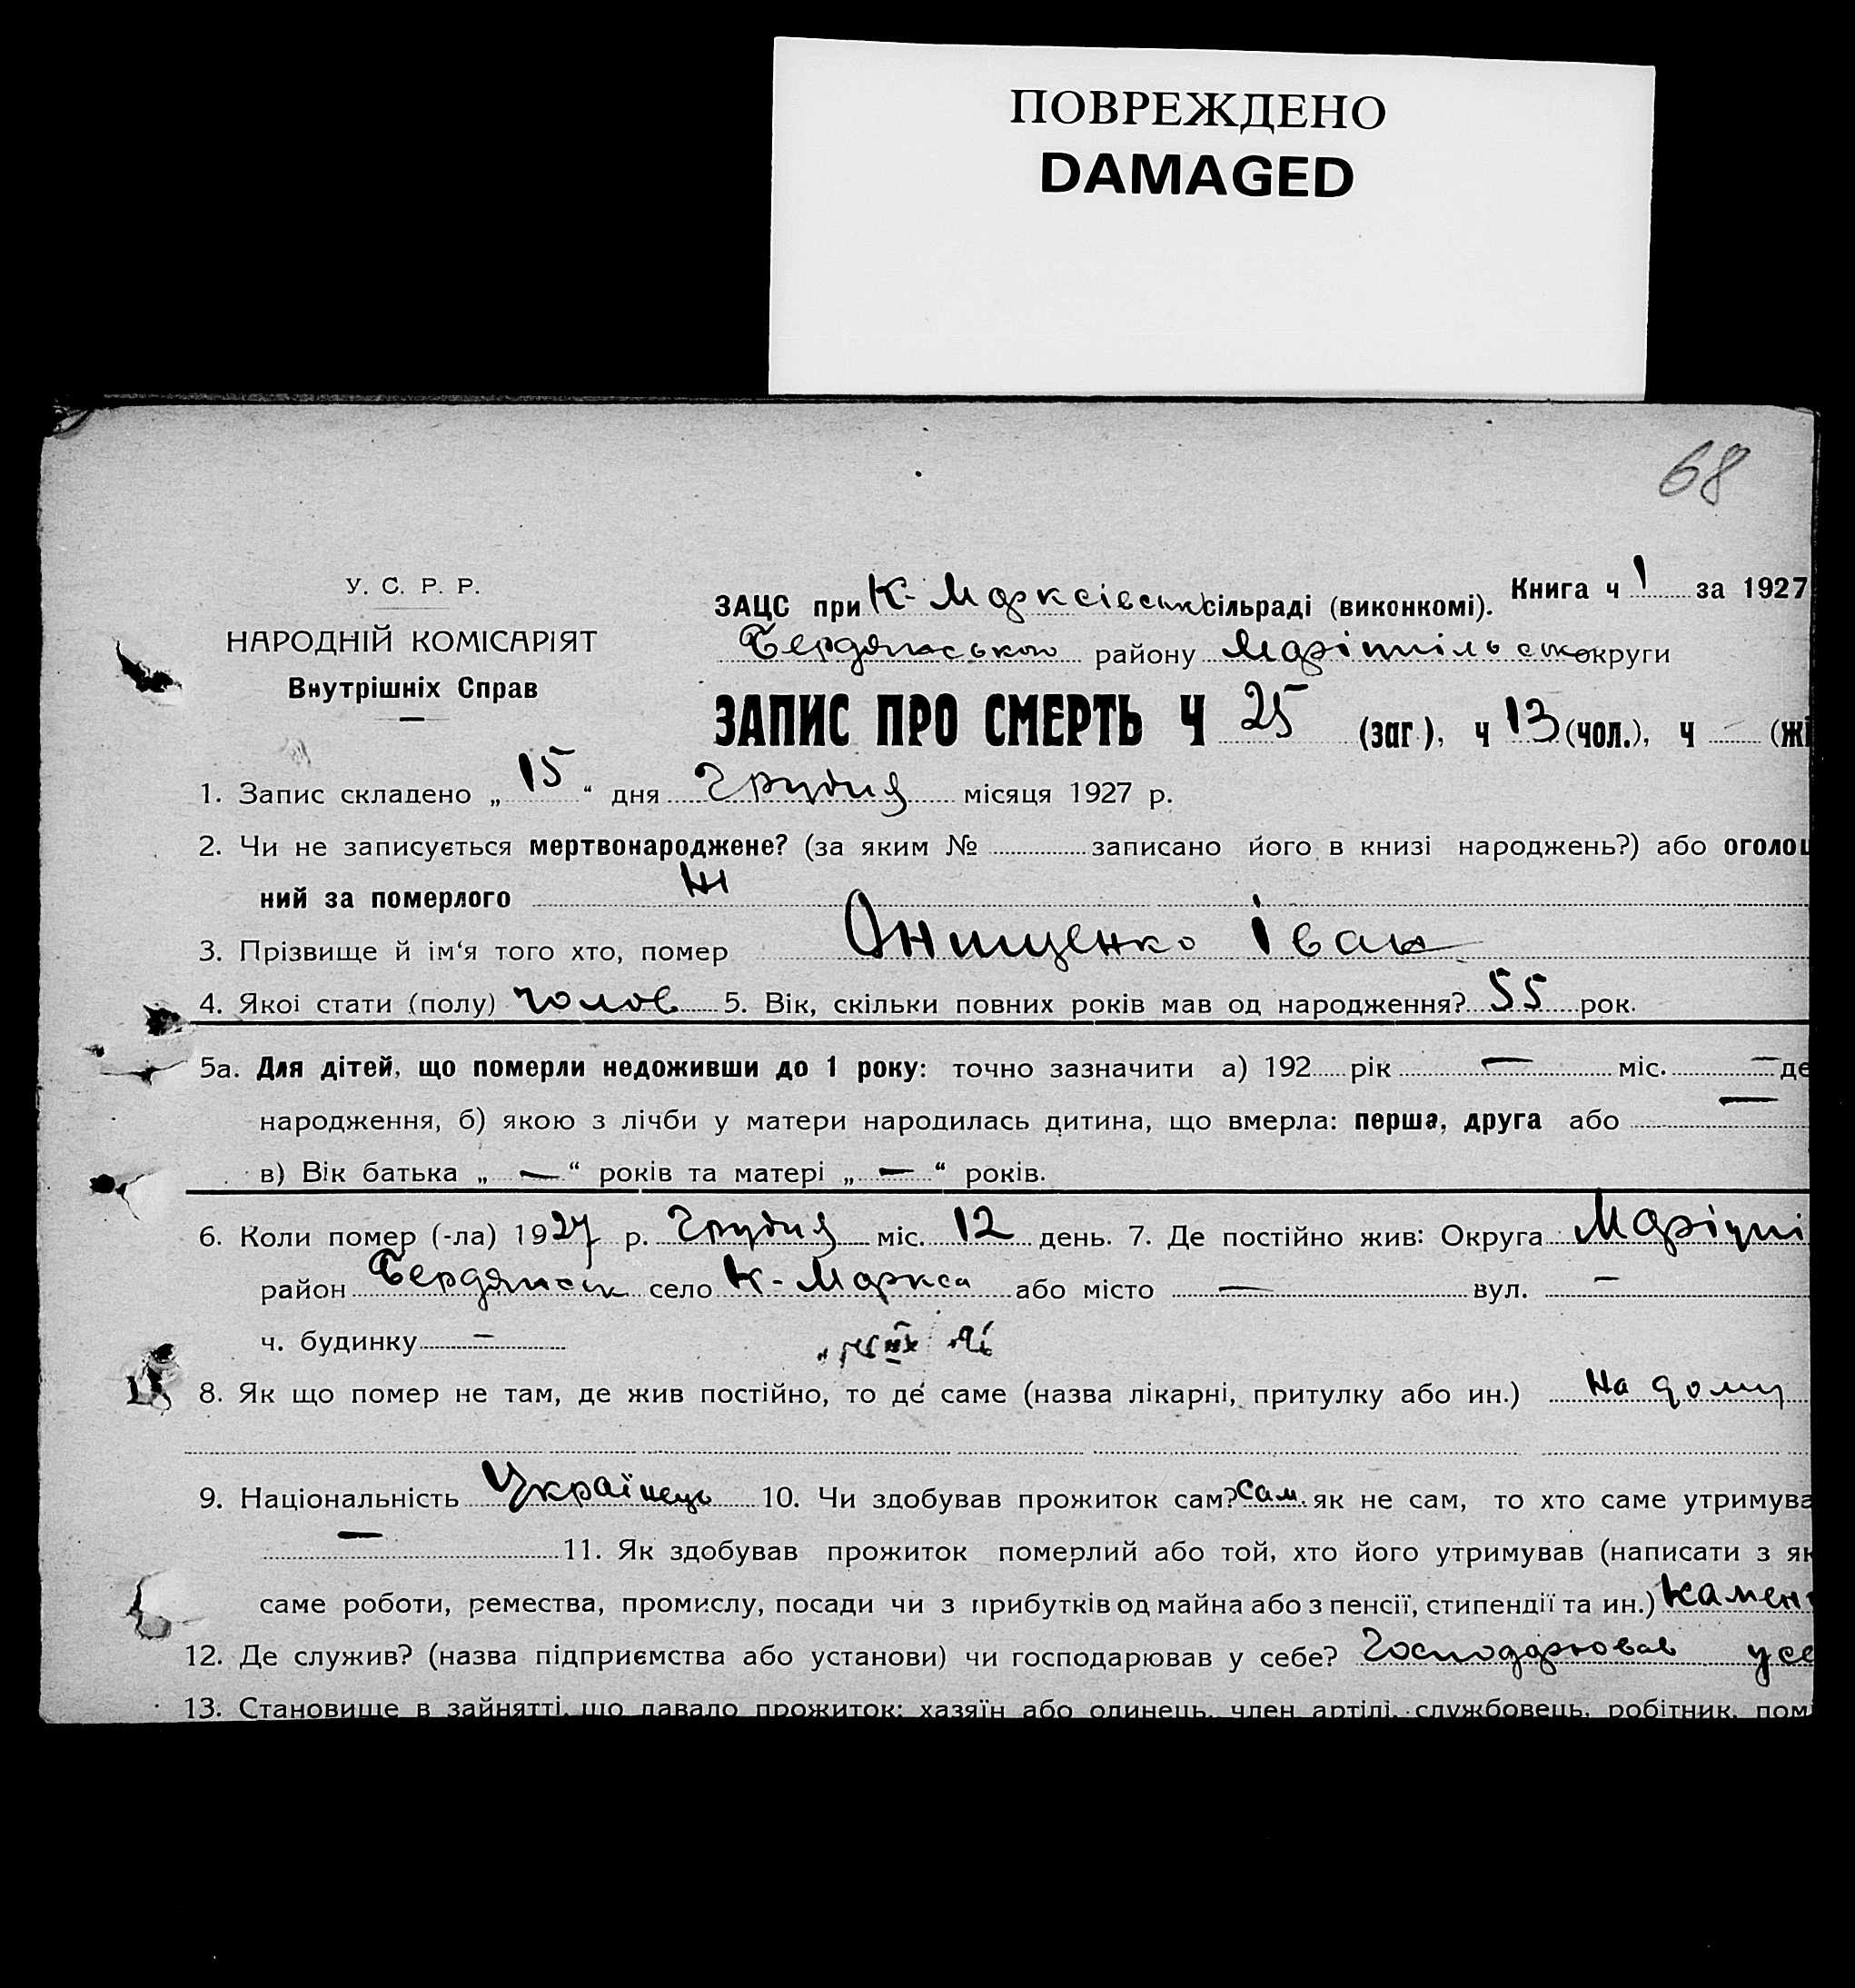 ПОВРЕЖДЕНО
DAMAGED
68
У. С. Р. Р.
НАРОДНІЙ КОМІСАРІЯТ
Внутрішніх Справ
ЗАЦС при К-Марксівськ сільраді (виконкомі). Книга ч 1 за 1927
Бердянського району Маріпільськ округи
ЗАПИС ПРО СМЕРТЬ Ч 25 (заг.), ч 13 (чол.), ч — (жі
1. Запис складено „15“ дня Грудня місяця 1927 р.
2. Чи не записується мертвонароджене? (за яким № записано його в книзі народжень?) або оголош
ний за померлого Ні
3. Прізвище й ім‘я того хто, помер Онищенко Іван
4. Якоі стати (полу) чолов 5. Вік, скільки повних років мав од народження? 55 рок.
5а. Для дітей, що померли недоживши до 1 року: точно зазначити а) 192 рік — міс. — де
народження, б) якою з лічби у матери народилась дитина, що вмерла: перша, друга або —
в) Вік батька „ — “ років та матері „ — “ років.
6. Коли помер (-ла) 1927 р. Грудня міс. 12 день. 7. Де постійно жив: Округа Маріупі
район Бердянськ село К-Маркса або місто — вул. —
ч. будинку —
8. Як що помер не там, де жив постійно, то де саме (назва лікарні, притулку або ин.) на дому
9. Національність Українець 10. Чи здобував прожиток сам? Сам. як не сам, то хто саме утримува
— 11. Як здобував прожиток померлий або той, хто його утримував (написати з як
саме роботи, ремества, промислу, посади чи з прибутків од майна або з пенсії, стипендії та ин.) камен
12. Де служив? (назва підприємства або установи) чи господарював у себе? Господарював усе
13. Становище в зайнятті, що давало прожиток: хазяїн або одинець, член артілі, службовець, робітник, помі